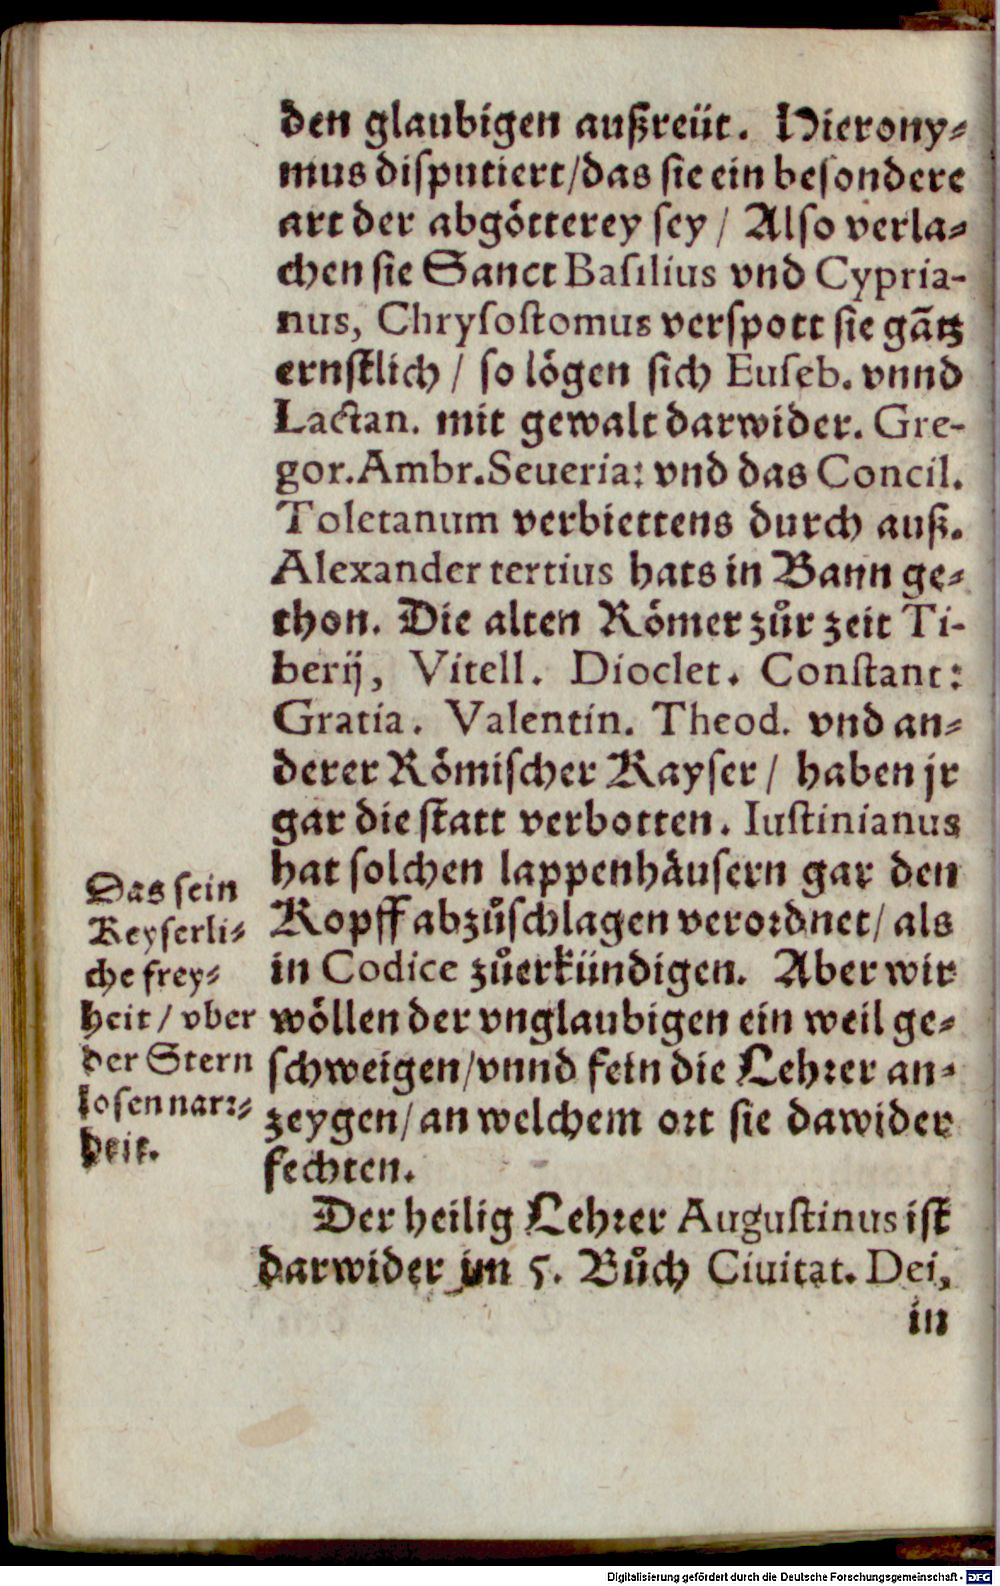 den glaubigen außreüt. Hierony⸗
mus disputiert/das sie ein besondere
art der abgötterey sey / Also verla⸗
chen sie Sanct Basilius vnd Cypria-
nus, Chrysostomus verspott sie gãtz
ernstlich / so lögen sich Euseb. vnnd
Lactan. mit gewalt darwider. Gre-
gor. Ambr. Seueria: vnd das Concil.
Toletanum verbiettens durch auß.
Alexander tertius hats in Bann ge⸗
thon. Die alten Römer zůr zeit Ti-
berij, Vitell. Dioclet. Constant:
Gratia. Valentin. Theod. vnd an⸗
derer Römischer Kayser / haben jr
gar die statt verbotten. Iustinianus
hat solchen lappenhäusern gar den
Kopff abzůschlagen verordnet/ als
in Codice zůerkündigen. Aber wir
wöllen der vnglaubigen ein weil ge⸗
schweigen/vnnd fein die Lehrer an⸗
zeygen/ an welchem ort sie dawider
fechten.
Das sein
Keyserli⸗
che frey⸗
heit / vber
der Stern
losen narr⸗
heit.
Der heilig Lehrer Augustinus ist
darwider im 5. Bůch Ciuitat. Dei,
in
Digitalisierung gefördert durch die Deutsche Forschungsgemeinschaft - DFG